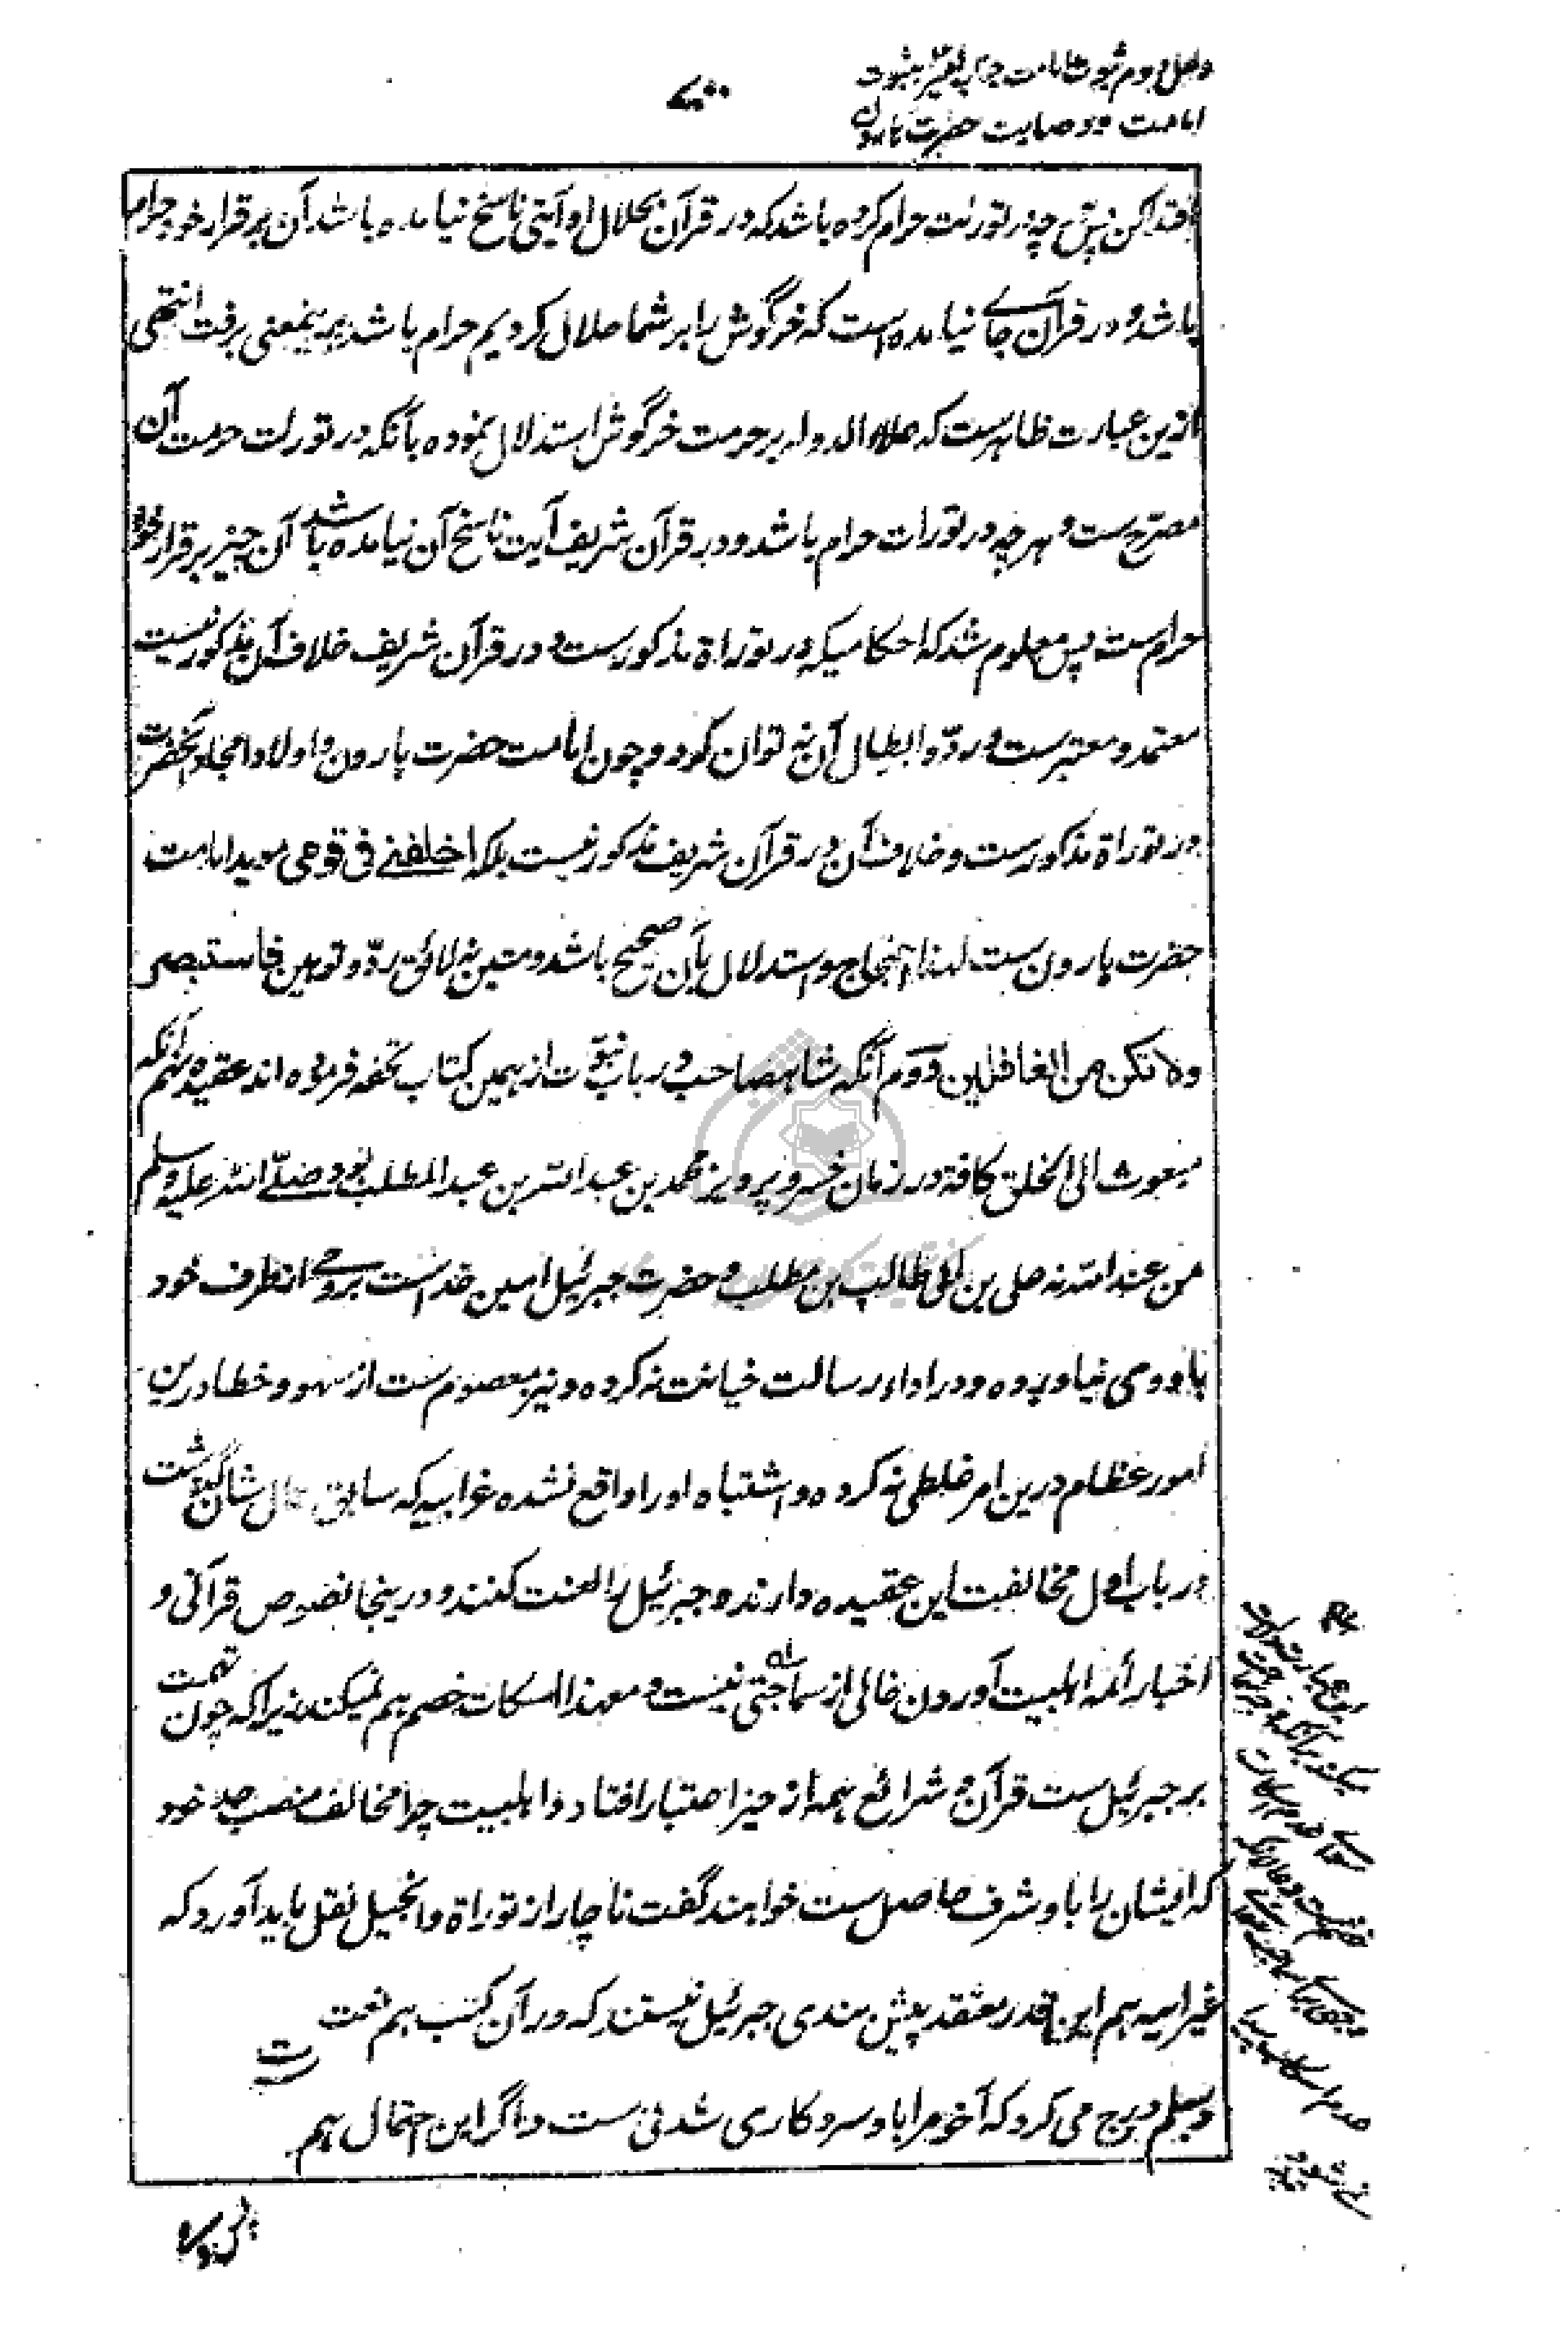 وصل دوم ثبوت امامت جناب امیر بثبوت
امامت و وصایت حضرت هارون
اقتدا کن پس چه در تورات حرام کرده باشد که در قرآن بحلال او آیتی ناسخ نیامده باشد آن بر قرار خود حرام
باشد و در قرآن جاے نیامده است که خرگوش را بر شما حلال کردیم حرام باشد بمعنی برفت انتهی
ازین عبارت ظاهرست که علاء الدوله بر حرمت خرگوش استدلال نموده بآنکه در تورات حرمت آن
مصرح ست و هر چه در تورات حرام باشد و در قرآن شریف آیت ناسخ آن نیامده باشد آن چیز بر قرار خود
حرام ست پس معلوم شد که احکامیکه در توراة مذکورست و در قرآن شریف خلاف آن مذکور نیست
معتمد و معتبرست و ردّ و ابطال آن نه توان کرد و چون امامت حضرت هارون و اولاد امجاد آنحضرت
در توراة مذکورست و خلاف آن در قرآن شریف مذکور نیست بلکه اخلفنے فی قومی موید امامت
حضرت هارون ست لهذا احتجاج و استدلال بآن صحیح باشد و متین نه لائق ردّ و توهین فاستبصر
ولا تکن من الغافلین دوم آنکه شاهصاحب در باب نبوّت از همین کتاب تحفه فرموده اند عقیده نهم آنکه
مبعوث الی الخلق کافة در زمان خسرو پرویز محمد بن عبد الله بن عبد المطلب بود صلّے الله علیه وسلم
من عند الله نه علی بن ابی طالب بن مطلب و حضرت جبرئیل امین خداست بروحے از طرف خود
باو وحی نیاورده و در اداء رسالت خیانت نه کرده و نیز معصوم ست از سهو و خطا درین
امور عظام درین امر غلطی نه کرده و اشتباه او را واقع نشده غرابیه که سابق حال شان گذشت
در باب اول مخالفت این عقیده دارند و جبرئیل را لعنت کنند و درینجا نصوص قرآنی و
اخبار ائمه اهلبیت آوردن خالی از سماجتی نیست و معهذا اسکات خصم هم نمیکند زیرا که چون تهمت
بر جبرئیل ست قرآن و شرائع همه از حیز اعتبار افتاد و اهلبیت چرا مخالف منصب جد خود
که ایشان را باو شرف حاصل ست خواهند گفت ناچار از توراة و انجیل نقل باید آورد که
غرابیه هم این قدر معتقد پیش بندی جبرئیل نیستند که در آن کتب هم نعت
وسلم درج می کرد که آخر مرا باو سروکاری شدنی ست و اگر این احتمال هم